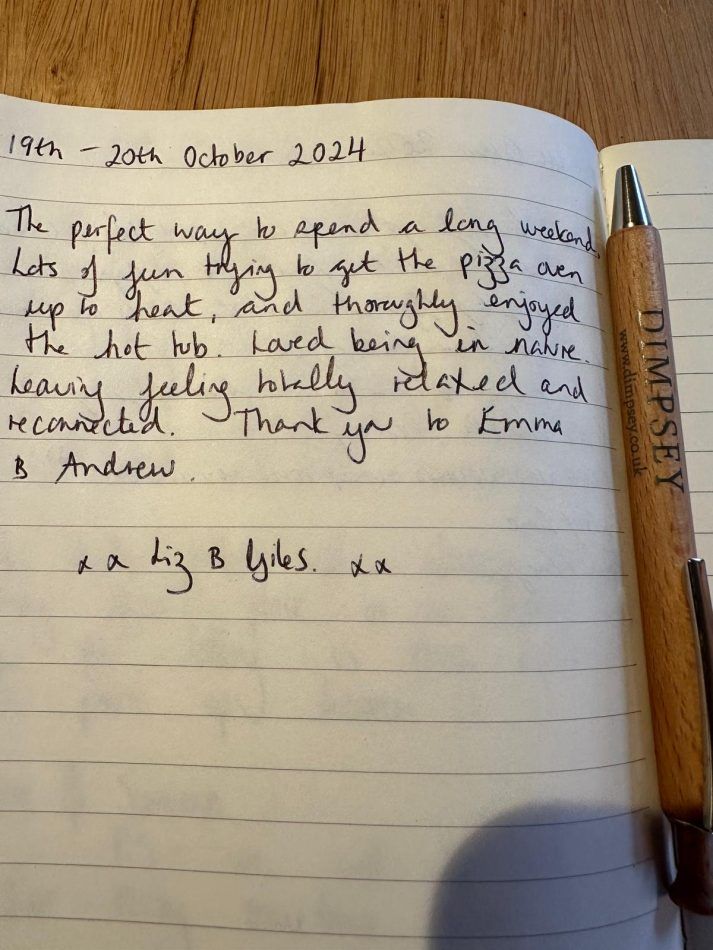 19th - 20th October 2024
The perfect way to spend a long weekend.
Lots of fun trying to get the pizza oven
up to heat, and thoroughly enjoyed
the hot tub. Loved being in nature.
Leaving feeling totally relaxed and
reconnected. Thank you to Emma
& Andrew.
x x Liz & Giles. x x
DIMPSEY
www.dimpsey.co.uk